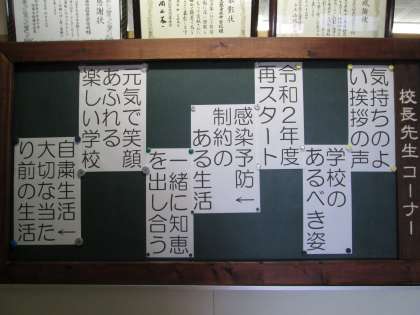 校長先生コーナー
気持ちのよ
い挨拶の声
学校の
あるべき姿
令和2年度
再スタート
感染予防←
制約の
ある生活
一緒に知恵
を出し合う
元気で笑顔
あふれる
楽しい学校
自粛生活←
大切な当た
り前の生活